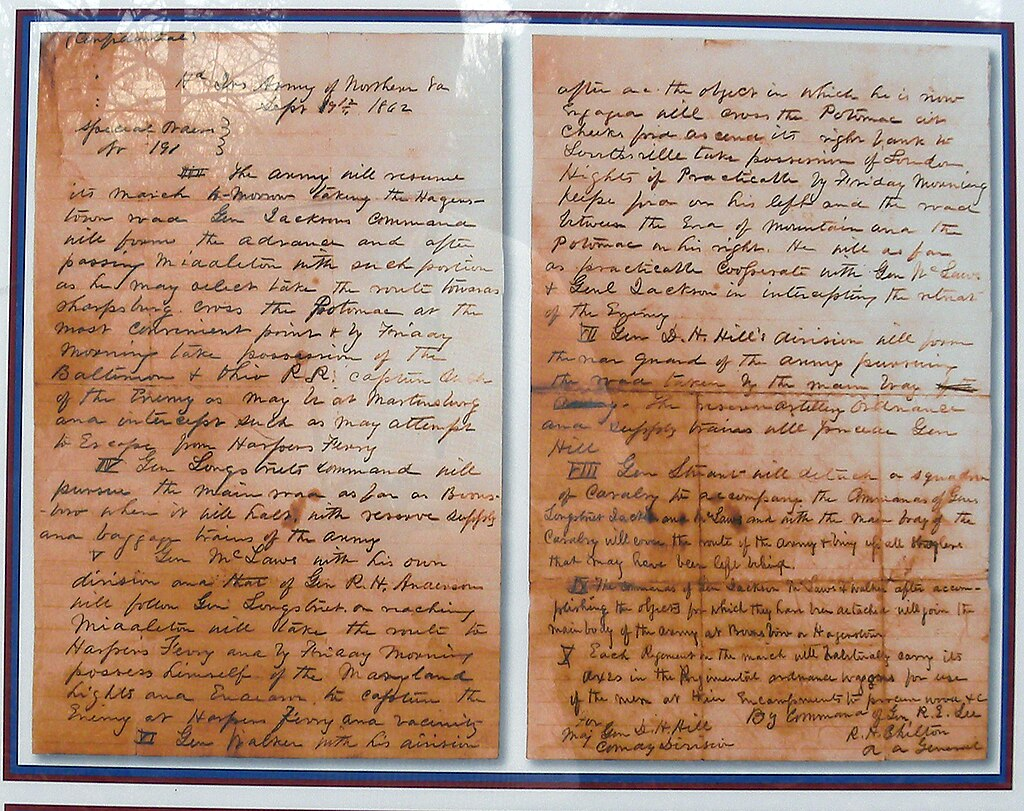 (Confidential)
Hd Qrs Army of Northern Va
Sept 9th 1862
Special Orders }
No 191 }
III The Army will resume
its march to-morrow taking the Hagers-
town road Gen Jacksons Command
will form the advance and after
passing Middleton with such portion
as he may select take the route towards
Sharpsburg cross the Potomac at the
most convenient point & by Friday
Morning take possession of the
Baltimore & Ohio R.R. capture such
of the Enemy as may be at Martinsburg
and intercept such as may attempt
to Escape from Harpers Ferry
IV Gen Longstreets command will
pursue the main road as far as Boons-
boro when it will halt, with reserve supply
and baggage trains of the army
V Gen McLaws with his own
division and that of Gen R. H. Anderson
will follow Gen Longstreet. on reaching
Middleton will take the route to
Harpers Ferry and by Friday Morning
possess himself of the Maryland
Hights and Endeavor to capture the
Enemy at Harpers Ferry and vacinity
VI Gen Walker with his division
after acc the object in which he is now
Engaged will cross the Potomac at
Cheeks ford ascend its right bank to
Lovettsville take possession of Loudon
Hights if Practicable by Friday Morning
Keeps ford on his left and the road
between the End of Mountain and the
Potomac on his right. He will as far
as practicable Cooperate with Gen McLaws
& Genl Jackson in intercepting the retreat
of the Enemy
VII Gen D. H. Hill's division will form
the rear guard of the army pursuing
the road taken by the main body
The reserve Artillery Ordnance
and supply trains will precede Gen
Hill
VIII Gen Stuart will detach a squadron
of Cavalry to accompany the Commands of Gens
Longstreet Jackson and McLaws and with the main body of the
Cavalry will cover the route of the Army & bring up all stragglers
that may have been left behind.
IX The commands of Gen Jackson McLaws & Walker after accom-
plishing the objects for which they have been detached will join the
main body of the army at Boonsboro or Hagerstown
X Each Regiment on the march will habitually carry its
axes in the Regimental ordnance waggons for use
of the men at their Encampments to procure wood &c
By Command of Gen R. E. Lee
R. H. Chilton
A A General
For
Maj Gen D. H. Hill
Comdg Division